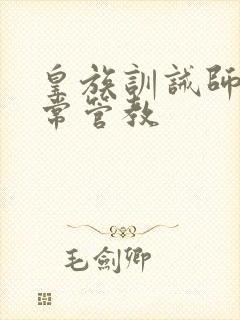 皇族訓誡師
常管教
毛劍卿